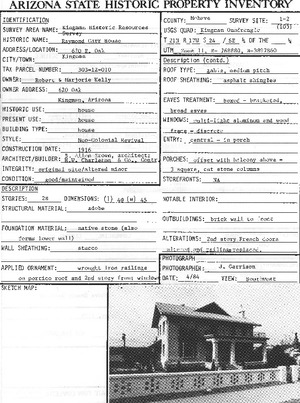 ARIZONA STATE HISTORIC PROPERTY INVENTORY
IDENTIFICATION
SURVEY AREA NAME: Kingman Historic Resources Survey
HISTORIC NAME: Raymond Gary House
ADDRESS/LOCATION: 620 E. Oak
CITY/TOWN: Kingman
TAX PARCEL NUMBER:
OWNER: Robert & Marjorie Kelly
OWNER ADDRESS: 620 Oak
Kingman, Arizona
HISTORIC USE: house
PRESENT USE: house
BUILDING TYPE: house
STYLE: Neo-Colonial Revival
CONSTRUCTION DATE: 1916
ARCHITECT/BUILDER:
INTEGRITY: original site/altered minor
CONDITION: good/maintained
DESCRIPTION
STORIES: 2s DIMENSIONS: (l) 40 (w) 45
STRUCTURAL MATERIAL: adobe
FOUNDATION MATERIAL: native stone (also
forms lower wall)
WALL SHEATHING: stucco
APPLIED ORNAMENT: wrought iron railings
on portico roof and 2nd story front windows
SKETCH MAP:
COUNTY: Mohave SURVEY SITE: 1-2
USGS QUAD: Kingman Quadrangle
T 21N R 17W S 24
Description (contd.)
ROOF TYPE: gable, medium pitch
ROOF SHEATHING: asphalt shingles
EAVES TREATMENT: boxed - bracketed,
broad eaves
WINDOWS: multi-light aluminum and wood
ENTRY: central - in porch
PORCHES: offset with balcony above -
3 square, cut stone columns
STOREFRONTS: NA
NOTABLE INTERIOR:
OUTBUILDINGS: brick wall to
ALTERATIONS: 2nd story French doors
PHOTOGRAPH
PHOTOGRAPHER: J. Garrison
DATE: 4/84 VIEW: Southwest